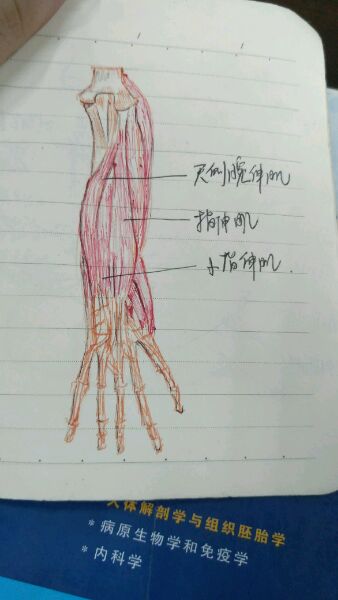 尺侧腕伸肌
指伸肌
小指伸肌.
人体解剖学与组织胚胎学
* 病原生物学和免疫学
* 内科学